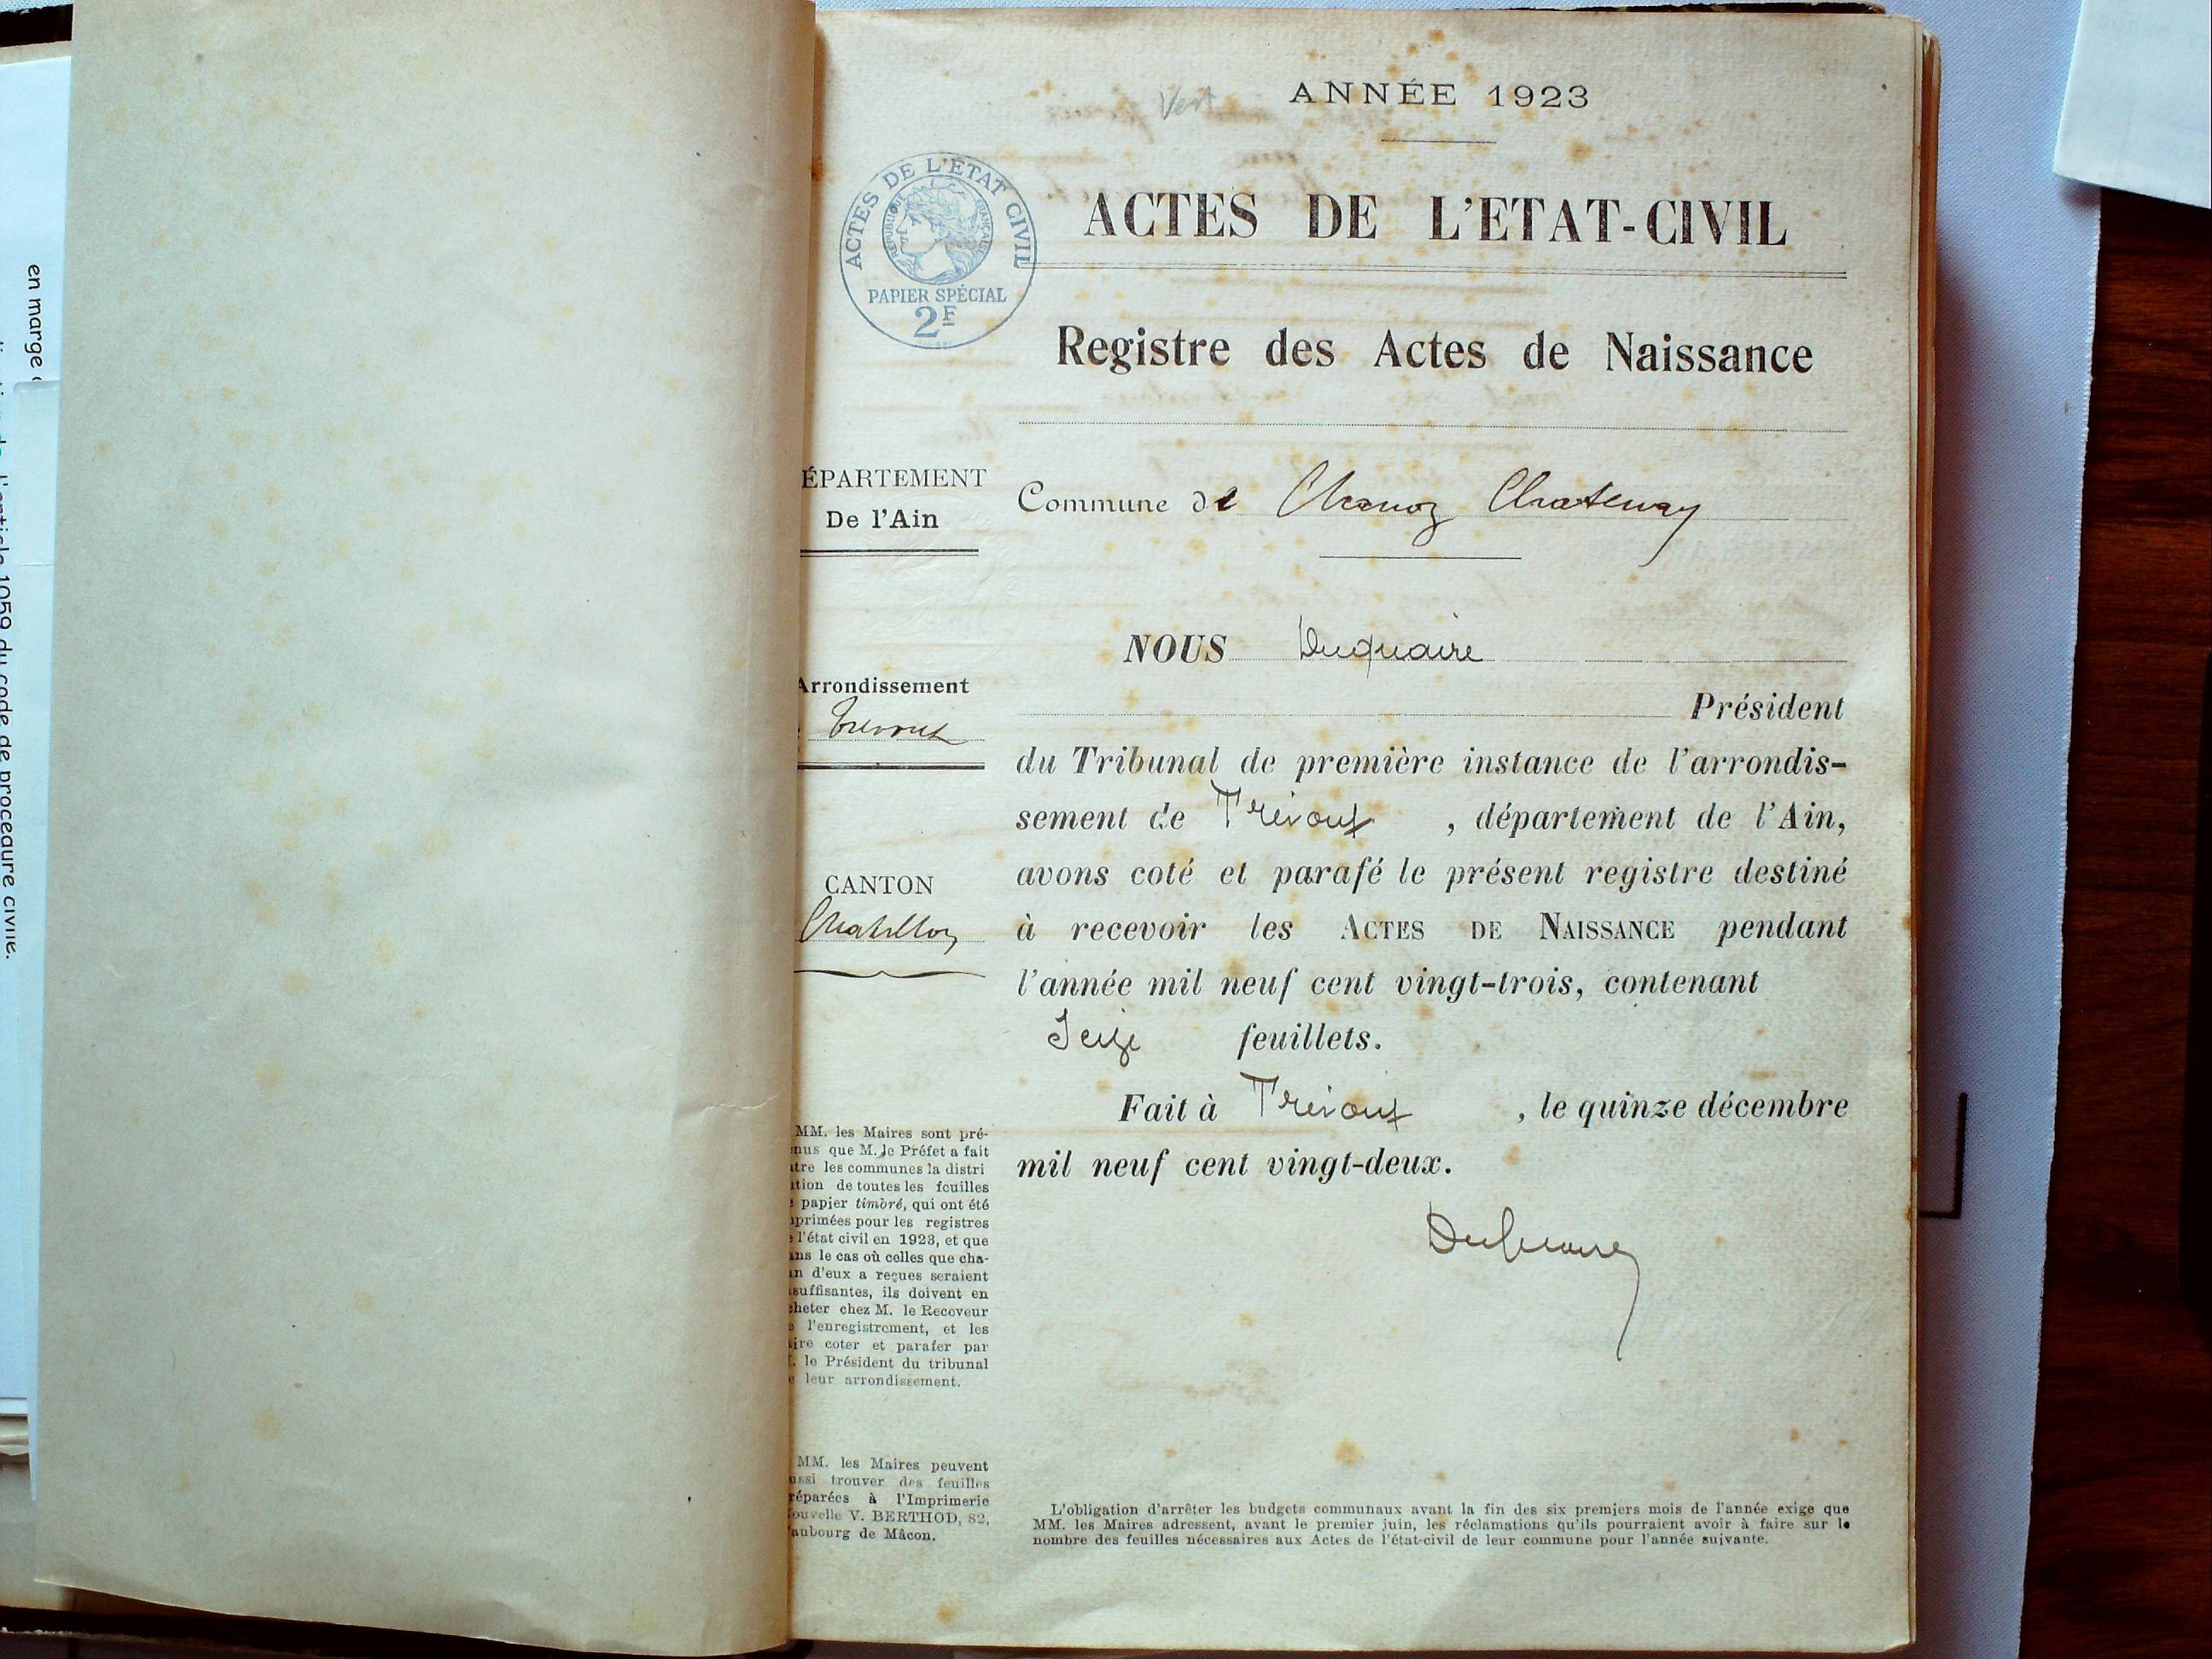 en marge
l'article 1059 du code de procedure civile.
Vert
ANNÉE 1923
ACTES DE L'ÉTAT CIVIL
RÉPUBLIQUE FRANÇAISE
PAPIER SPÉCIAL
2F
ACTES DE L'ETAT-CIVIL
Registre des Actes de Naissance
ÉPARTEMENT
De l'Ain
Commune de Chanoz Chatenay
Arrondissement
Trevoux
CANTON
Chatillon
NOUS Duquaire
Président
du Tribunal de première instance de l'arrondis-
sement de Trévoux , département de l'Ain,
avons coté et parafé le présent registre destiné
à recevoir les ACTES DE NAISSANCE pendant
l'année mil neuf cent vingt-trois, contenant
Seize feuillets.
Fait à Trévoux , le quinze décembre
mil neuf cent vingt-deux.
Duquaire
MM. les Maires sont pré-
nus que M. le Préfet a fait
tre les communes la distri
tion de toutes les feuilles
papier timbré, qui ont été
primées pour les registres
l'état civil en 1923, et que
ans le cas où celles que cha-
n d'eux a reçues seraient
suffisantes, ils doivent en
cheter chez M. le Receveur
l'enregistrement, et les
ire coter et parafer par
. le Président du tribunal
e leur arrondissement.
MM. les Maires peuvent
ussi trouver des feuilles
réparées à l'Imprimerie
ouvelle V. BERTHOD, 82,
aubourg de Mâcon.
L'obligation d'arrêter les budgets communaux avant la fin des six premiers mois de l'année exige que
MM. les Maires adressent, avant le premier juin, les réclamations qu'ils pourraient avoir à faire sur le
nombre des feuilles nécessaires aux Actes de l'état-civil de leur commune pour l'année suivante.